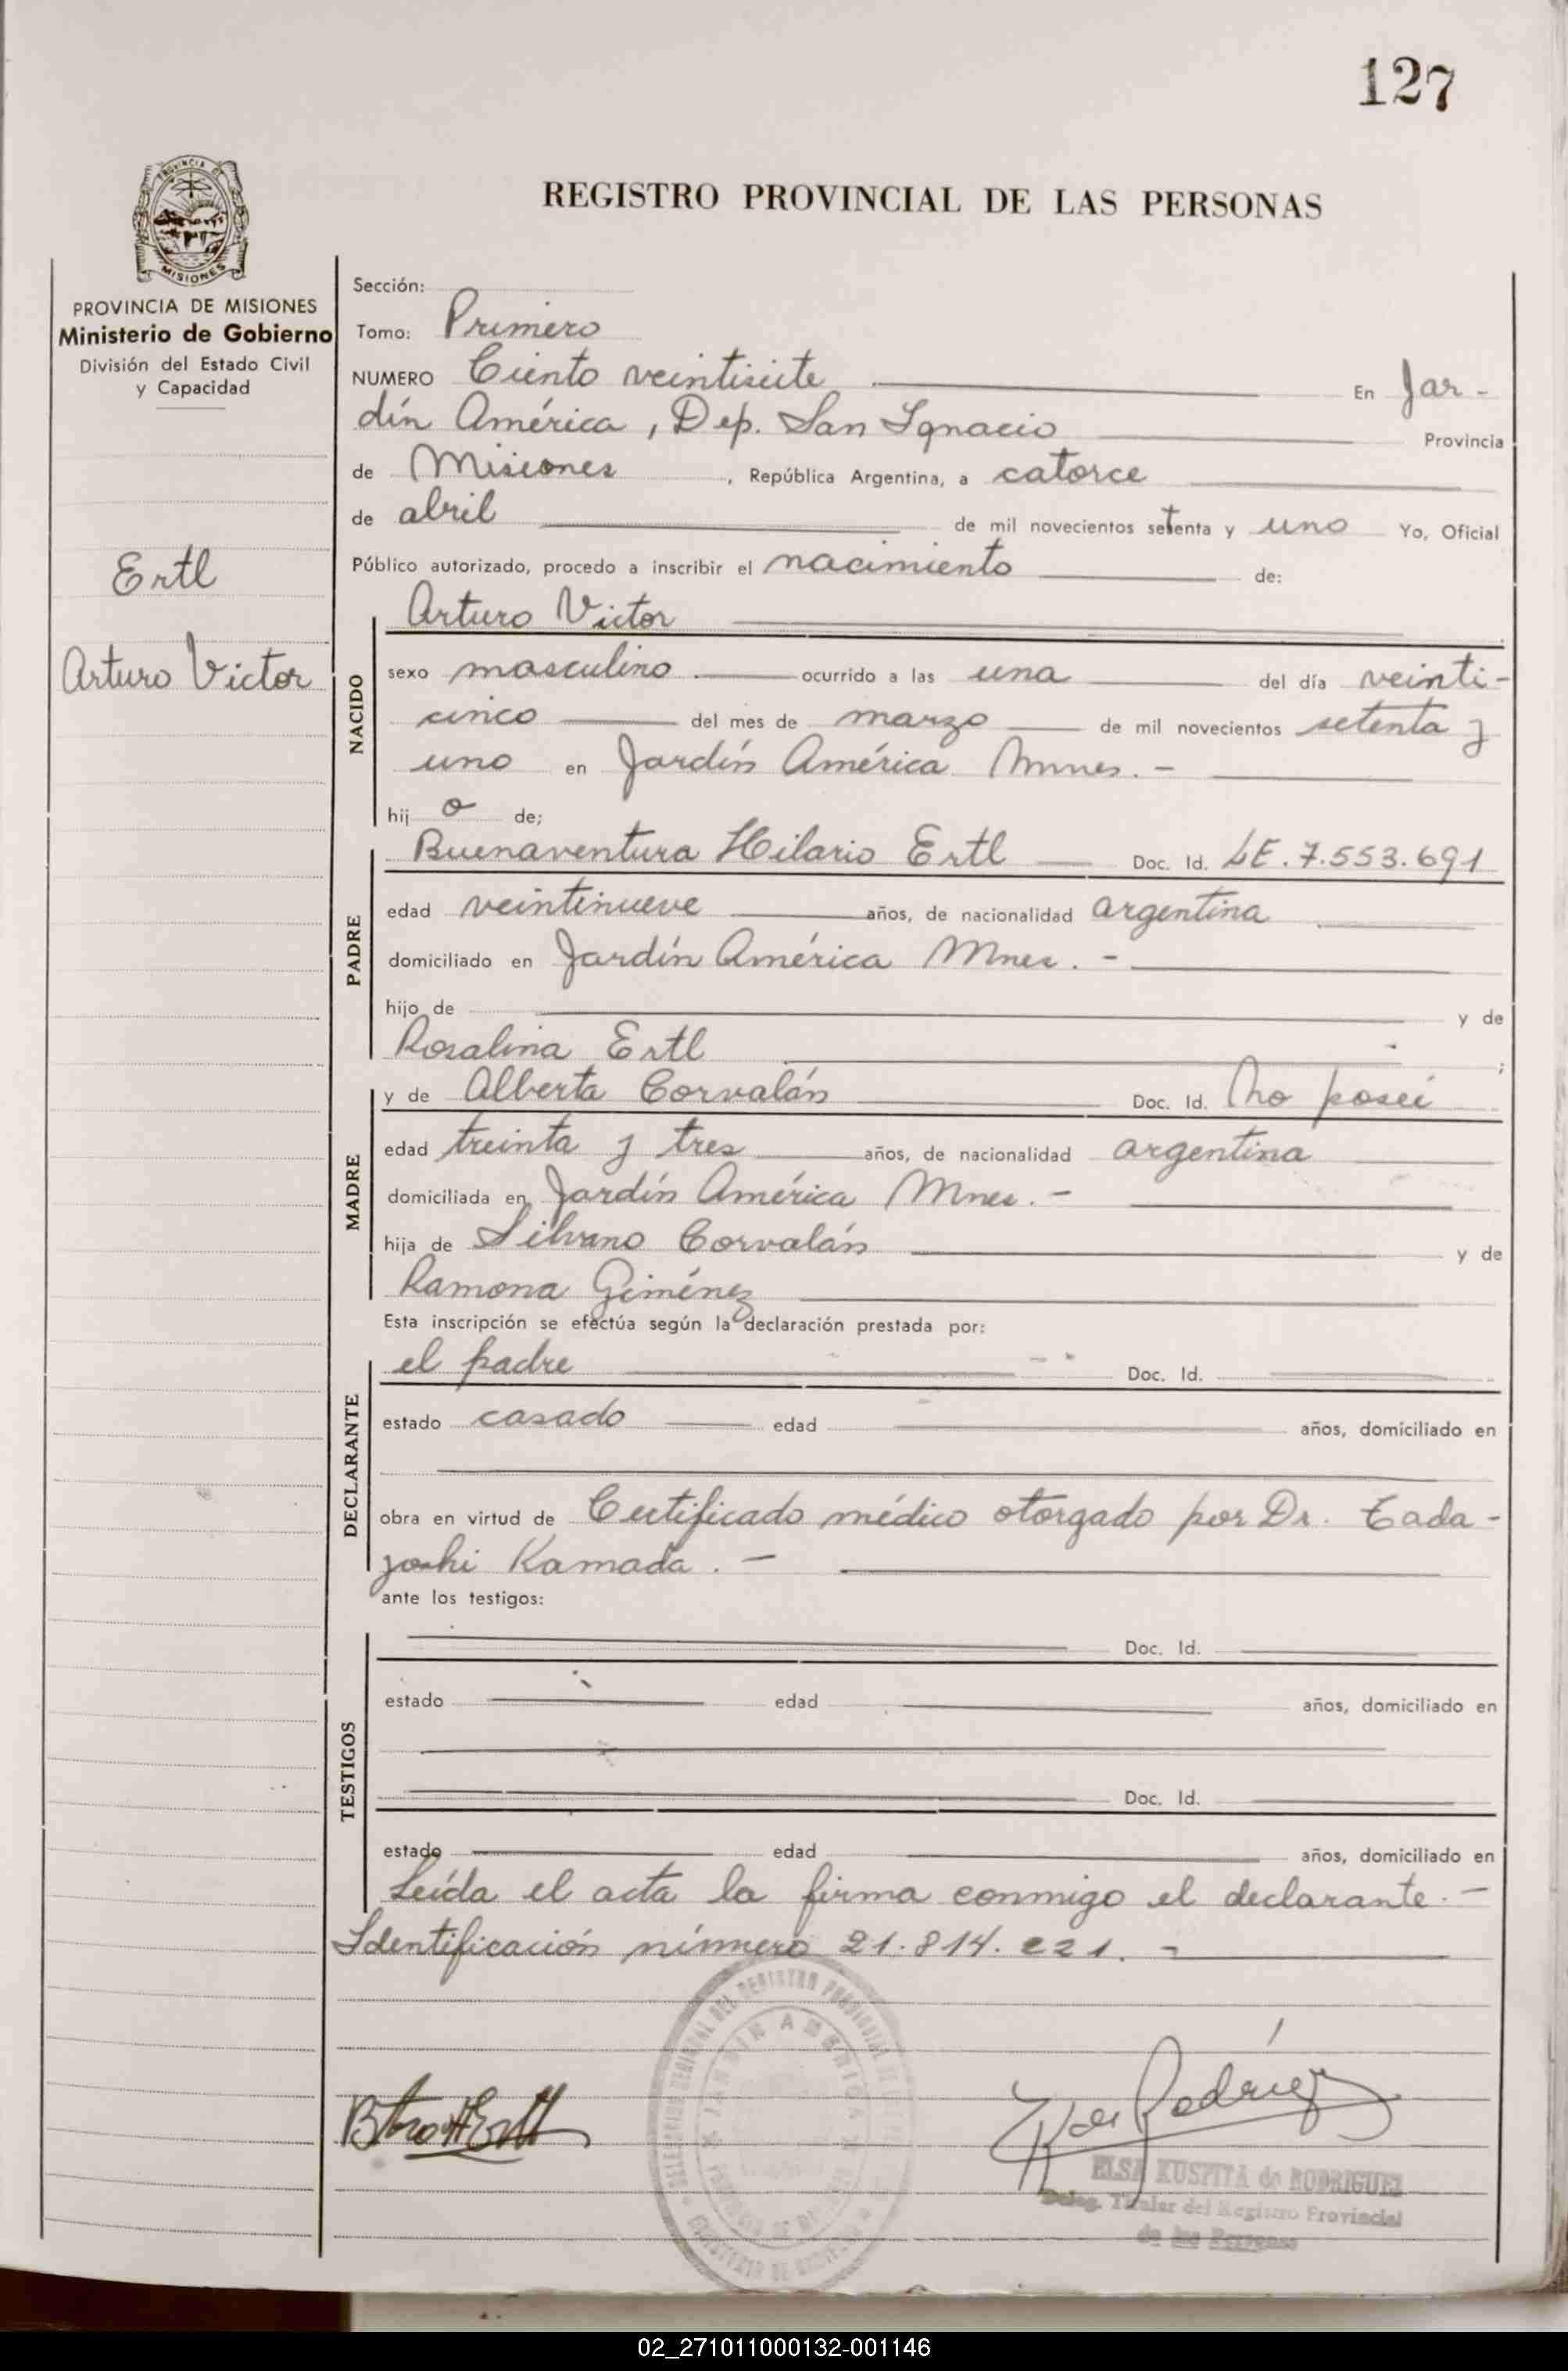 127
REGISTRO PROVINCIAL DE LAS PERSONAS
PROVINCIA DE MISIONES
Ministerio de Gobierno
División del Estado Civil
y Capacidad
Ertl
Arturo Victor
Sección:
Tomo: Primero
NUMERO Ciento veintisiete En Jar-
dín América, Dep. San Ignacio Provincia
de Misiones, República Argentina, a catorce
de abril de mil novecientos setenta y uno Yo, Oficial
Público autorizado, procedo a inscribir el nacimiento de:
Arturo Victor
NACIDO
sexo masculino ocurrido a las una del día veinti-
cinco del mes de marzo de mil novecientos setenta y
uno en Jardín América Mnes.-
hijo de;
PADRE
Buenaventura Hilario Ertl Doc. Id. LE.7.553.691
edad veintinueve años, de nacionalidad argentina
domiciliado en Jardín América Mnes.-
hijo de y de
Rosalina Ertl ;
MADRE
y de Alberta Corvalán Doc. Id. No poseé
edad treinta y tres años, de nacionalidad argentina
domiciliada en Jardín América Mnes.-
hija de Silvano Corvalán y de
Ramona Giménez
Esta inscripción se efectúa según la declaración prestada por:
DECLARANTE
el padre Doc. Id.
estado casado edad años, domiciliado en
obra en virtud de Certificado médico otorgado por Dr. Tada-
yoshi Kamada.-
ante los testigos:
TESTIGOS
Doc. Id.
estado edad años, domiciliado en
Doc. Id.
estado edad años, domiciliado en
Leída el acta la firma conmigo el declarante.-
Identificación número 21.814.221.-
JARDIN AMERICA
ELSA KUSPITA de RODRIGUEZ
Deleg. Titular del Registro Provincial
de las Personas
02_271011000132-001146